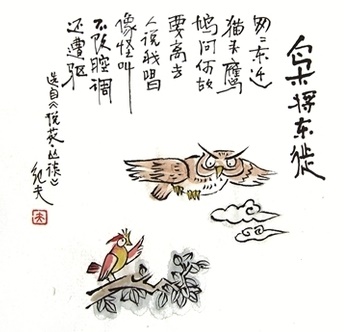 枭将东徙
匆々东迁
猫头鹰
鸠问何故
要离去
人说我唱
像怪叫
不改腔调
还遭驱
选自《说苑·丛谈》
纪夫
夫